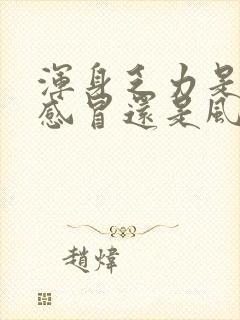 渾身乏力是
感冒還是風
趙煒